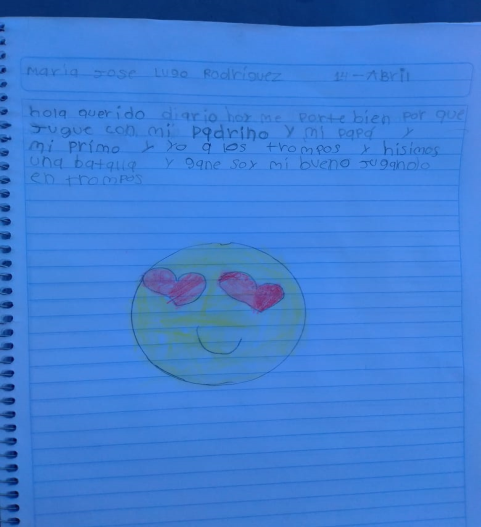 Maria Jose Lugo Rodriguez 14-Abril
hola querido diario hoy me porte bien por que
Jugue con mi padrino y mi papá y
mi primo y yo a los trompos y hisimos
una batalla y gane soy mi bueno jugando
en trompos